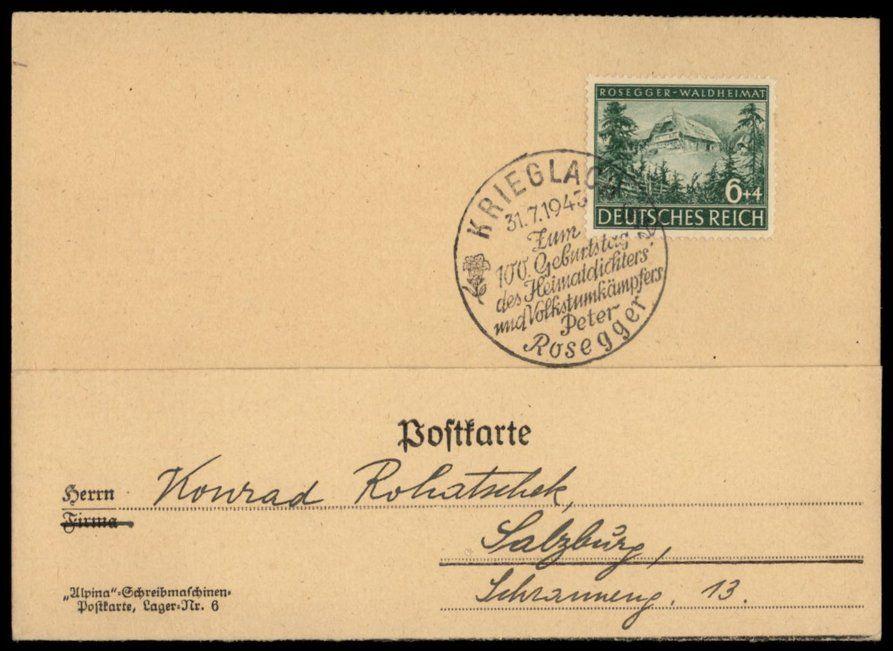 ROSEGGER-WALDHEIMAT
6+4
DEUTSCHES REICH
KRIEGLACH
31.7.1943
Zum
100. Geburtstag
des Heimatdichters
und Volkstumkämpfers
Peter
Rosegger
Postkarte
Herrn Konrad Rohatschek,
Firma
Salzburg,
Schranneng. 13.
„Alpina“-Schreibmaschinen-
Postkarte, Lager-Nr. 6